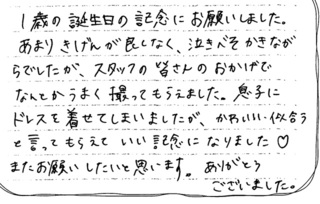 1歳の誕生日の記念にお願いしました。
あまりきげんが良しなく、泣きべそかきなが
らでしたが、スタッフの皆さんのおかげで
なんとかうまく撮ってもらえました。息子に
ドレスを着せてしまいましたが、かわいい・似合う
と言ってもらえていい記念になりました♡
またお願いしたいと思います。ありがとう
ございました。